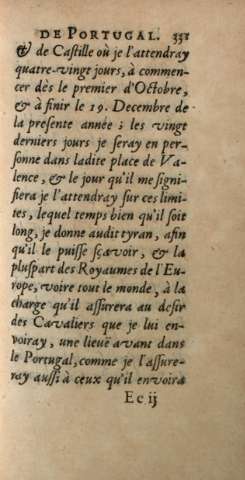 DE PORTUGAL. 331
& de Castille où je l'attendray
quatre-vingt jours, à commen-
cer dès le premier d'Octobre,
& à finir le 19. Decembre de
la presente année ; les vingt
derniers jours je seray en per-
sonne dans ladite place de Va-
lence, & le jour qu'il me signi-
fiera je l'attendray sur ces limi-
tes, lequel temps bien qu'il soit
long, je donne audit tyran, afin
qu'il le puisse sçavoir, & la
pluspart des Royaumes de l'Eu-
rope, voire tout le monde, à la
charge qu'il assurera au desir
des Cavaliers que je lui en-
voiray, une lieuë avant dans
le Portugal, comme je l'assure-
ray aussi à ceux qu'il envoira
Ee ij